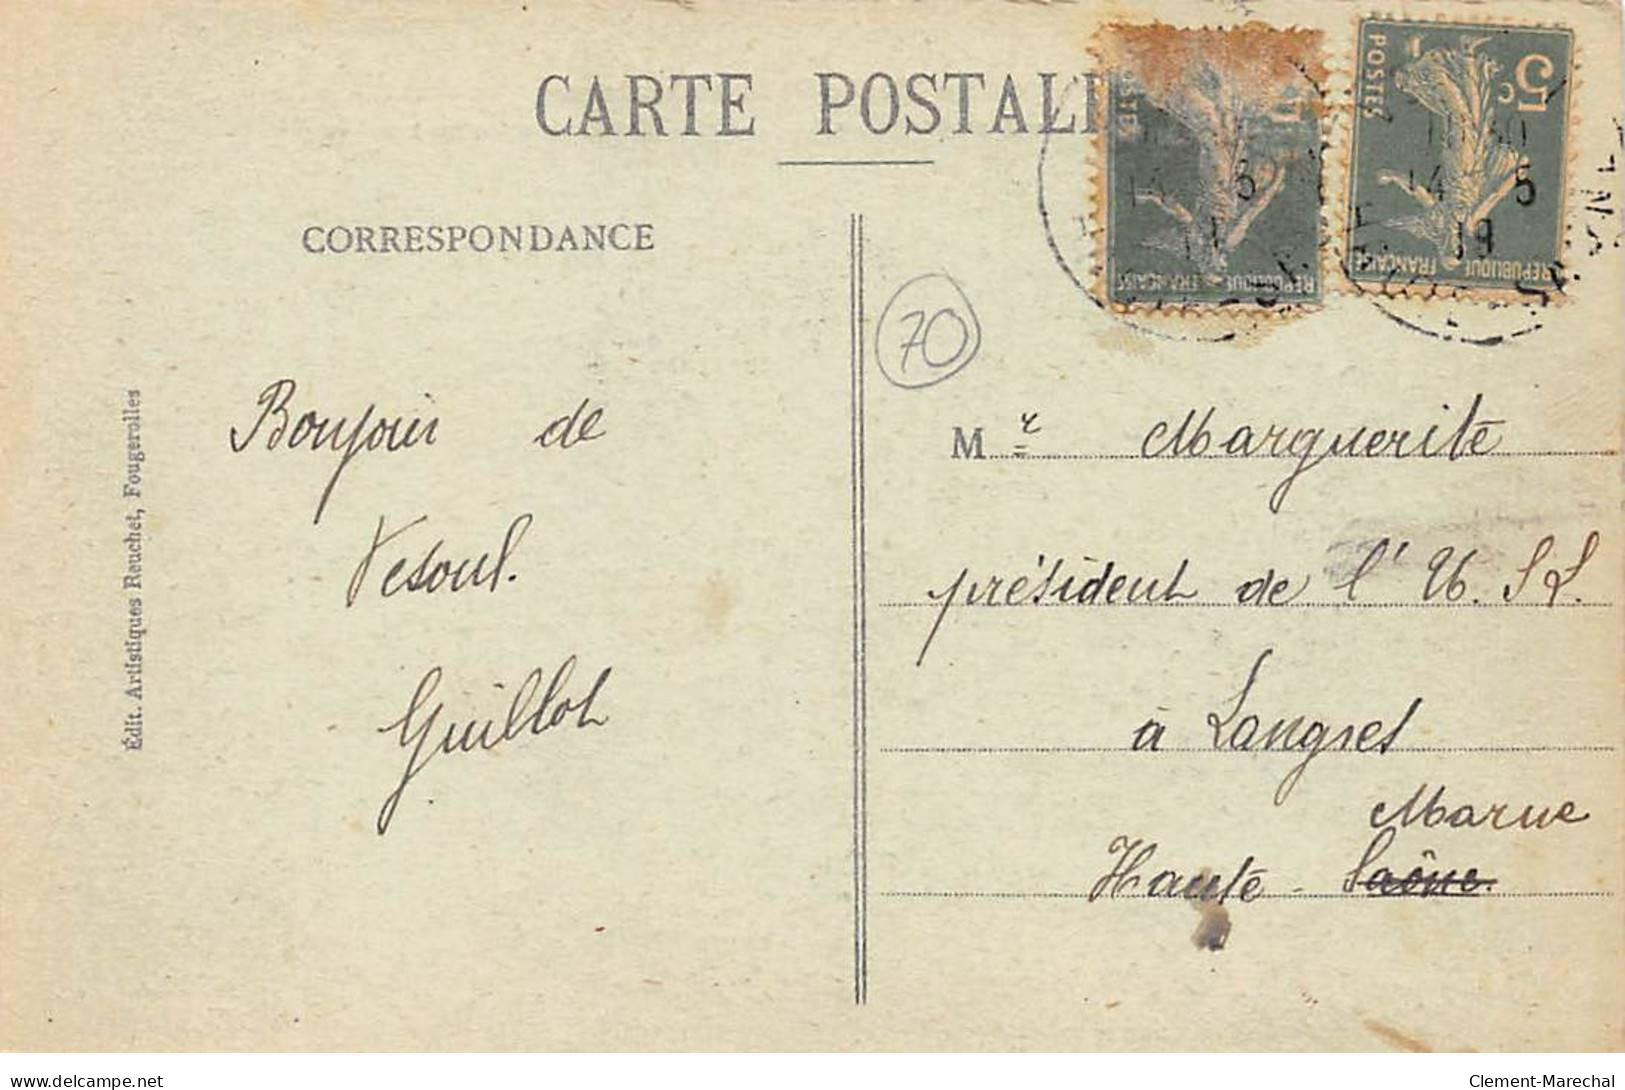 CARTE POSTALE
CORRESPONDANCE
Bonjour de
Vesoul.
Guillot
Édit. Artistiques Reuchet, Fougerolles
70
Mr Marguerite
président de l'U.S.L.
à Langres
Marne
Haute - Saône.
5c
POSTES
REPUBLIQUE FRANÇAISE
14 5
19
POSTES
REPUBLIQUE FRANÇAISE
delcampe.net
Clement-Marechal